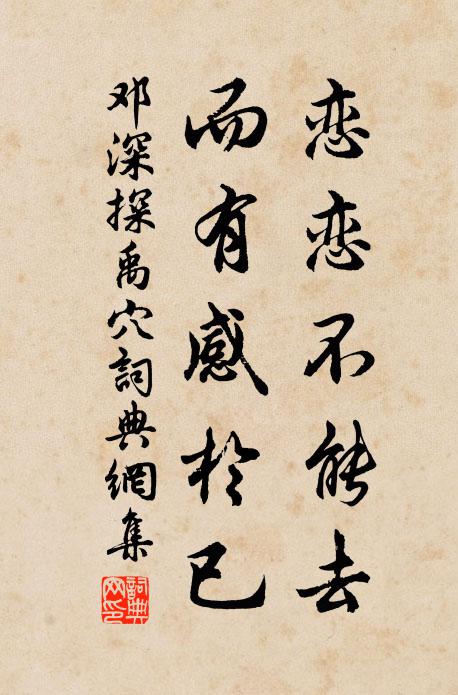 恋恋不能去
而有感於已
邓深探禹穴詞典網集
詞典网印